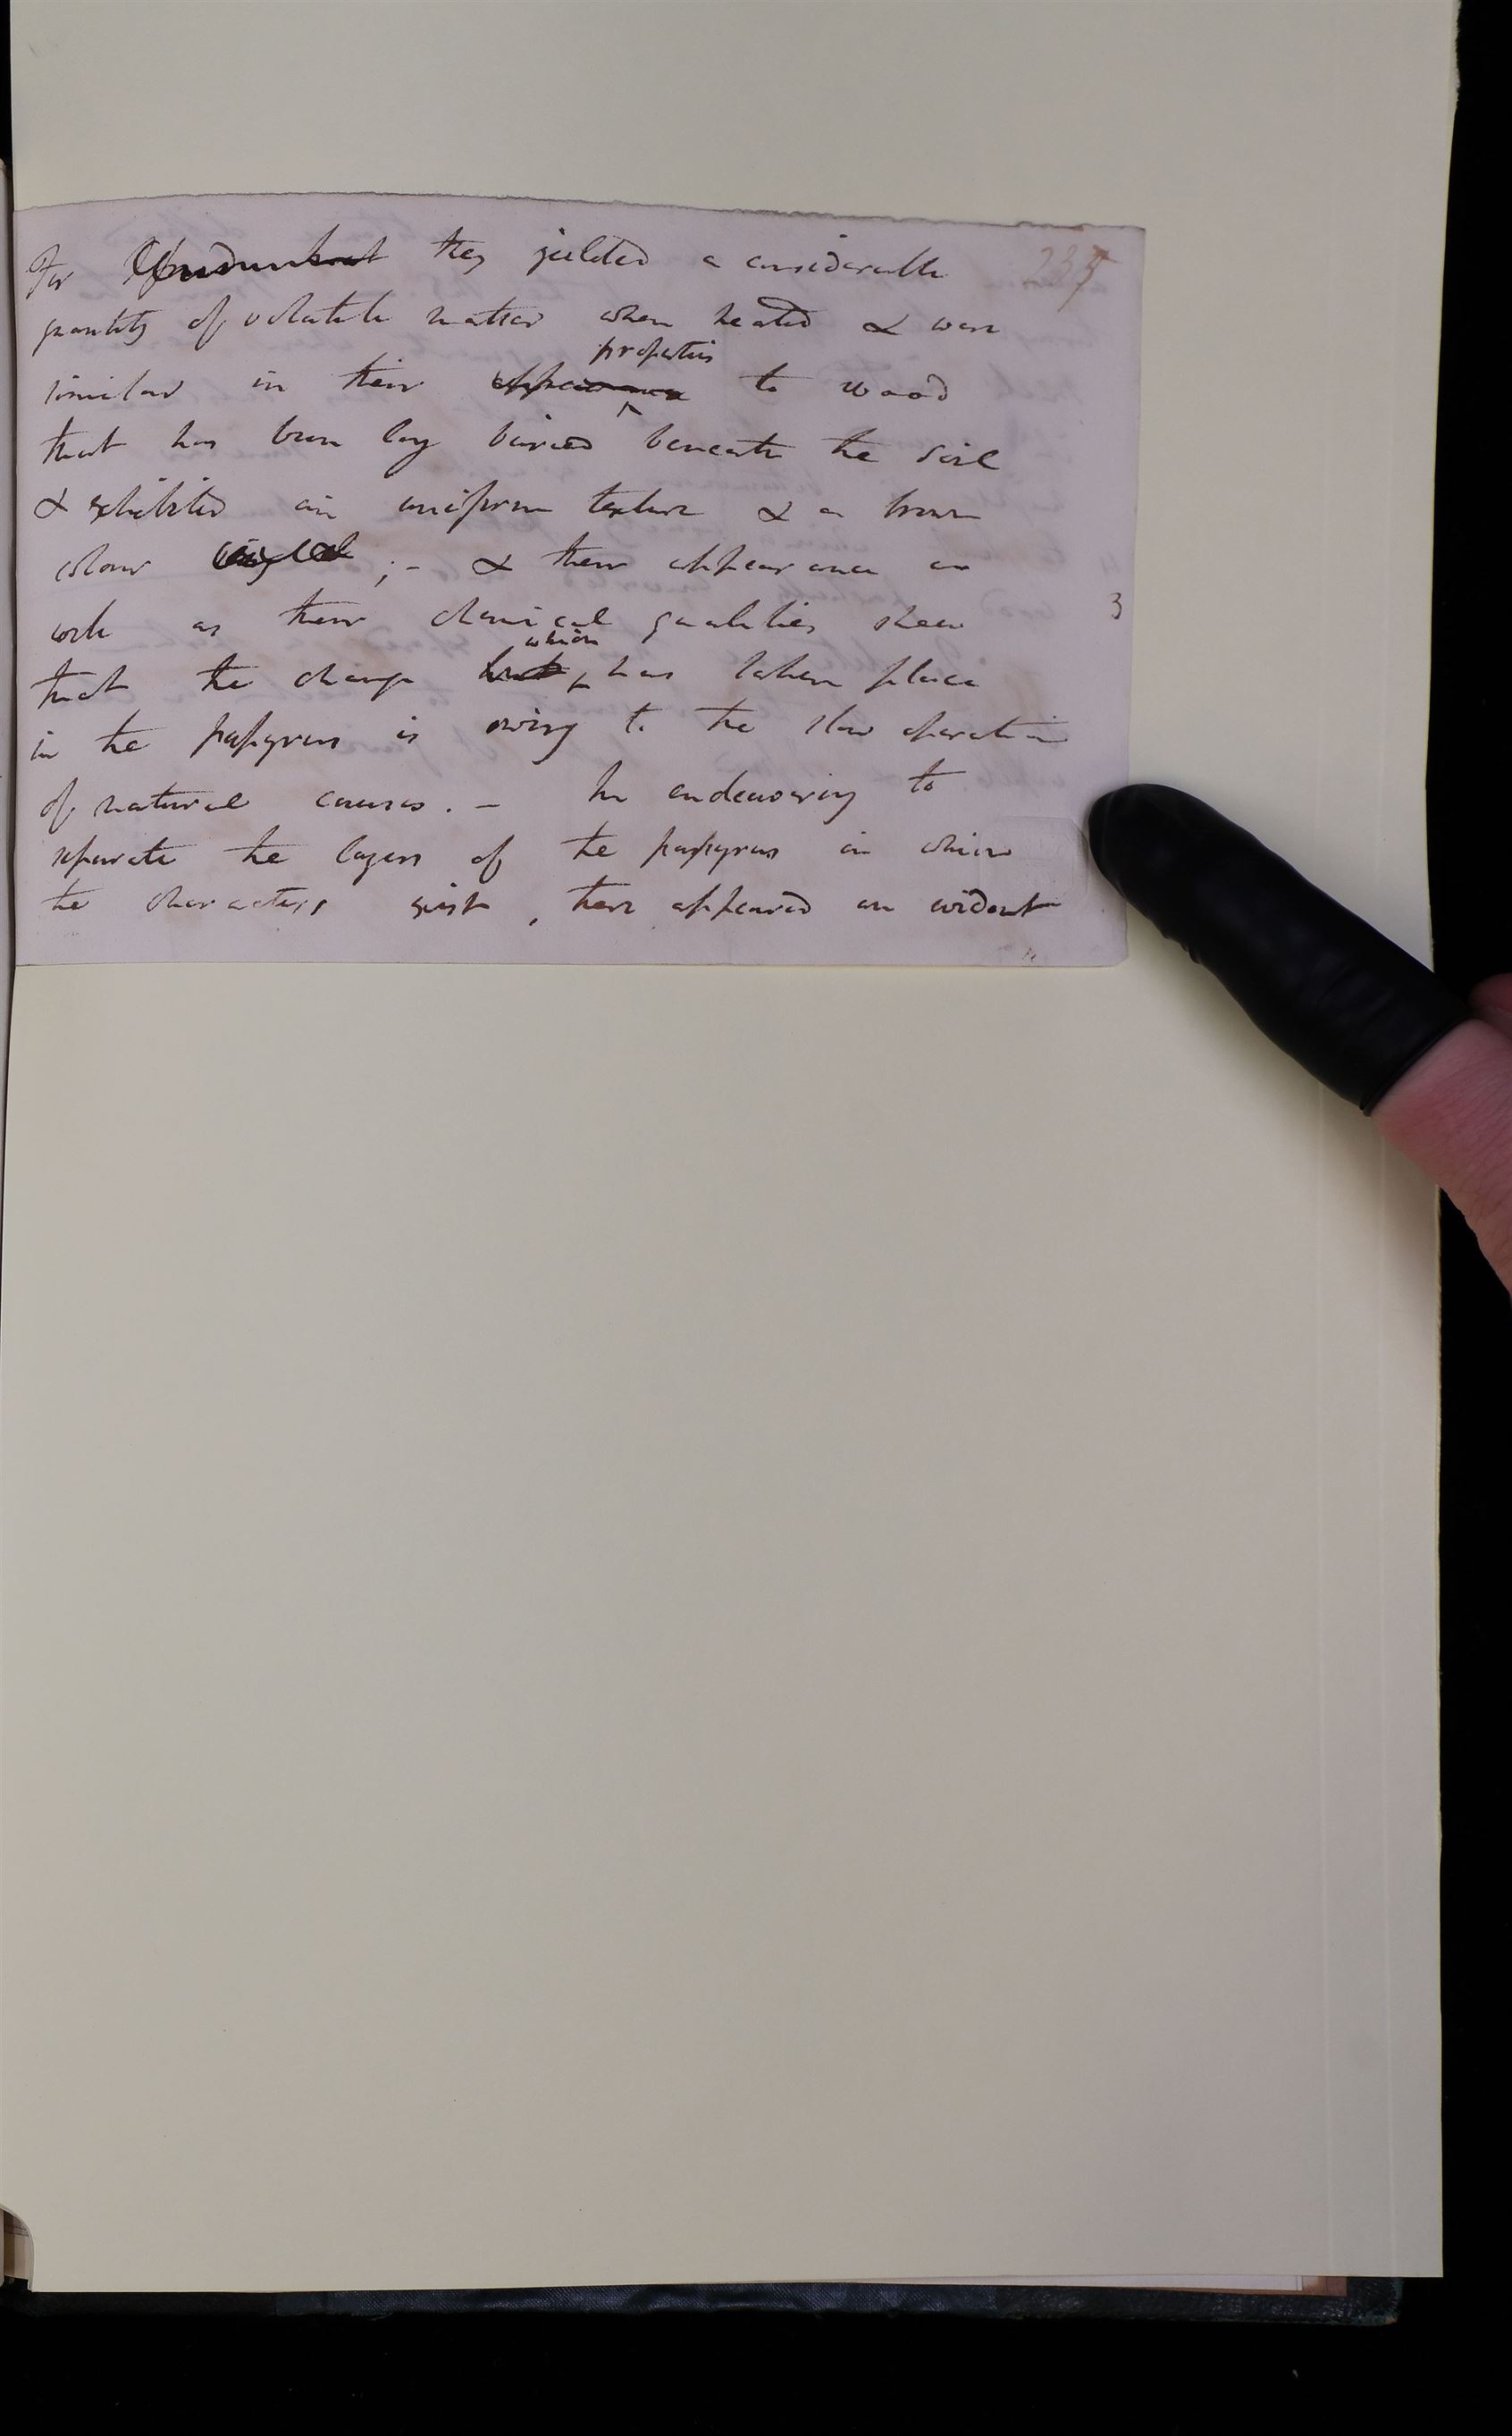 237
For they yielded a considerable
quantity of volatile matter when heated & were
properties
similar in their appearance to wood
that has been long buried beneath the soil
& exhibited an uniform texture & a brown
colour ;- & their appearance as
well as their chemical qualities shew
3
which
that the change has taken place
in the papyrus is owing to the slow operation
of natural causes. – In endeavoring to
separate the layers of the papyrus in which
the characters exist, there appeared an evident